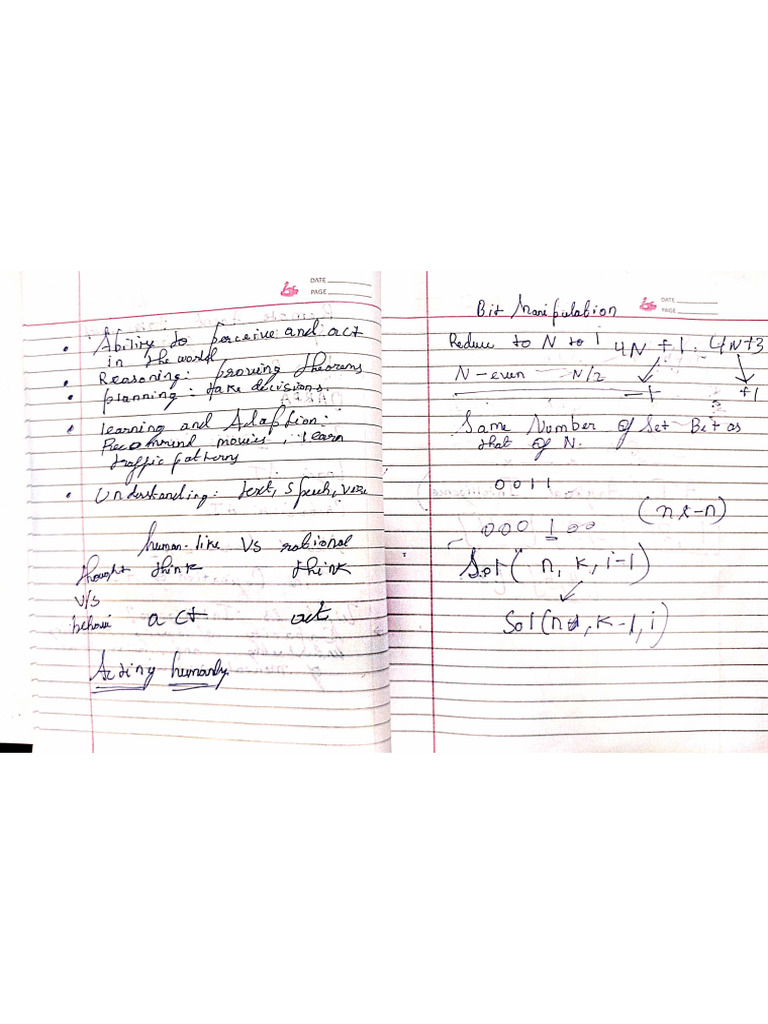 DATE
PAGE
• Ability to perceive and act
in the world
• Reasoning: proving theorems
• planning: take decisions.
• Learning and Adaption:
Recommend movies, learn
traffic patterns
• Understanding: text, speech,
human-like VS rational
thought think think
v/s
act act
Acting humanly.
DATE
PAGE
Bit Manipulation
Reduce to N to 1 4N+1. 4N+3
N-even N/2 -1 +1
Same Number of Set Bit as
that of N.
0011
(n&-n)
000100
Sol(n, k, i-1)
k-1, i)